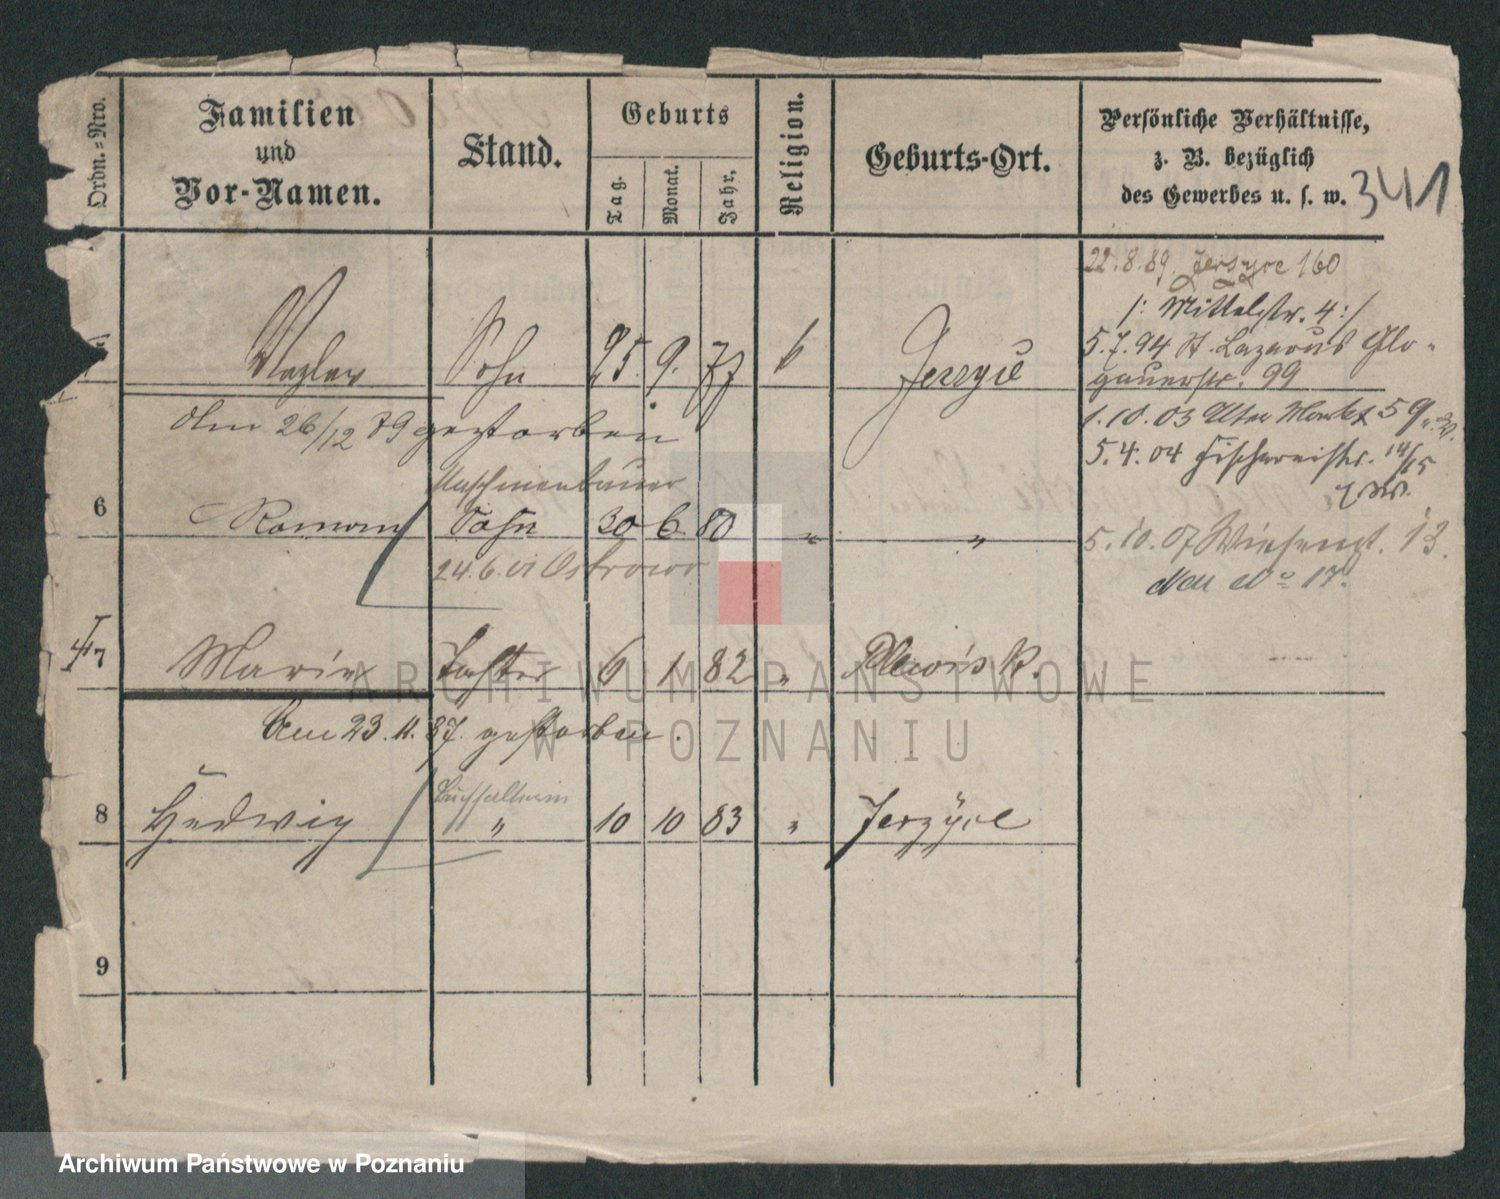 Ordn.=Nro.
Familien
und
Vor-Namen.
Stand.
Geburts
Tag.
Monat.
Jahr.
Religion.
Geburts-Ort.
Persönliche Verhältnisse,
z. B. bezüglich
des Gewerbes u. s. w.
341
22.8.89. Jersyce 160
/: Mittelstr. 4 :/
5.7.94 St. Lazarus Glo-
gauerstr. 99
Sohn 25. 9. 77
Am 26/12 79 gestorben
1.10.03 Alter Markt 59
5.4.04 Fischereistr. 14/15
Maschinenbauer
6 Roman Sohn 30 6 80 " "
24.6.01 Ostrowo
5.10.07 Wiesenst. 13.
Neu No 17.
7 Marie Tochter 6 1 82 "
Am 23.11.87. gestorben.
8 Hedwig " 10 10 83 " Jerzyce
9
ARCHIWUM PAŃSTWOWE
W POZNANIU
Archiwum Państwowe w Poznaniu